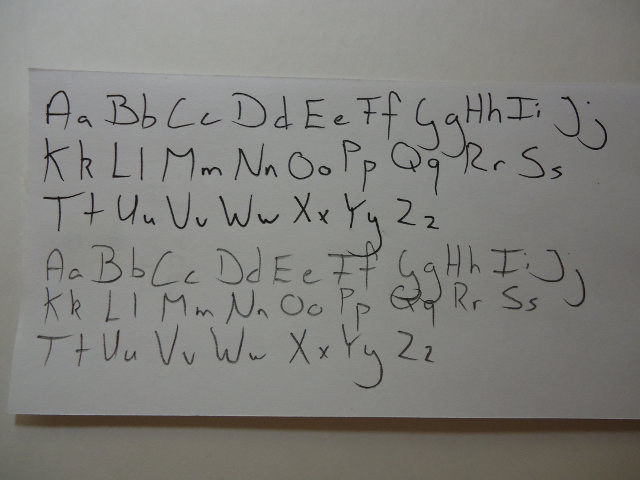 Aa Bb Cc Dd Ee Ff Gg Hh Ii Jj
Kk Ll Mm Nn Oo Pp Qq Rr Ss
Tt Uu Vv Ww Xx Yy Zz
Aa Bb Cc Dd Ee Ff Gg Hh Ii Jj
Kk Ll Mm Nn Oo Pp Qq Rr Ss
Tt Uu Vv Ww Xx Yy Zz